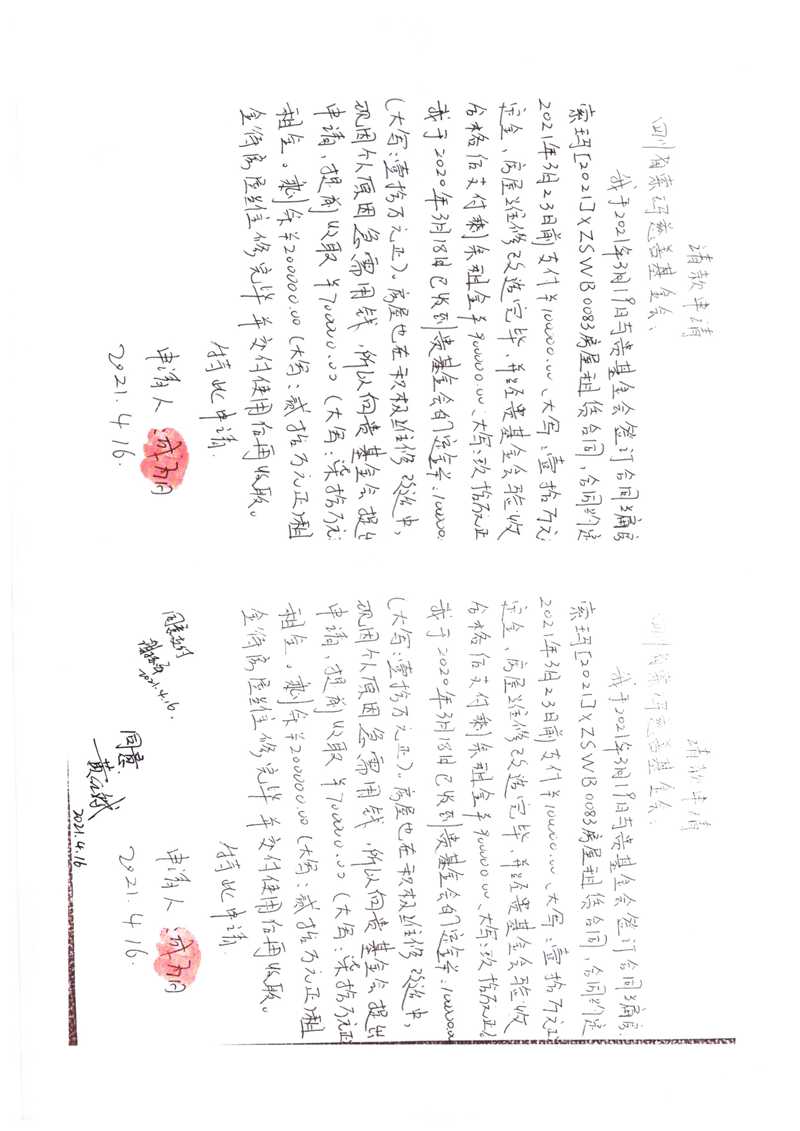 请款申请
四川省索玛慈善基金会:
我于2021年3月19日与贵基金会签订合同编号
索玛[2021]XZSWB0083房屋租赁合同,合同约定
2021年3月23日前支付¥100000.00、大写:壹拾万元
定金,房屋维修改造完毕,并经贵基金会验收
合格后支付剩余租金¥900000.00、大写:玖拾万元正
我于2020年3月18日已收到贵基金会的定金¥:100000
(大写:壹拾万元正)。房屋也在积极维修改造中,
现因个人原因急需用钱,所以向贵基金会提出
申请,提前收取¥700000.00(大写:柒拾万元
租金。剩余¥200000.00(大写:贰拾万元正)租
金待房屋维修完毕并交付使用后再收取。
特此申请.
申请人
2021.4.16.
请款申请
四川省索玛慈善基金会:
我于2021年3月19日与贵基金会签订合同编号
索玛[2021]XZSWB0083房屋租赁合同,合同约定
2021年3月23日前支付¥100000.00、大写:壹拾万元
定金,房屋维修改造完毕,并经贵基金会验收
合格后支付剩余租金¥900000.00、大写:玖拾万元正
我于2020年3月18日已收到贵基金会的定金¥:100000
(大写:壹拾万元正)。房屋也在积极维修改造中,
现因个人原因急需用钱,所以向贵基金会提出
申请,提前收取¥700000.00(大写:柒拾万元正
租金。剩余¥200000.00(大写:贰拾万元正)租
金待房屋维修完毕并交付使用后再收取。
特此申请.
申请人
2021.4.16.
同意支付
2021.4.16.
同意.
2021.4.16